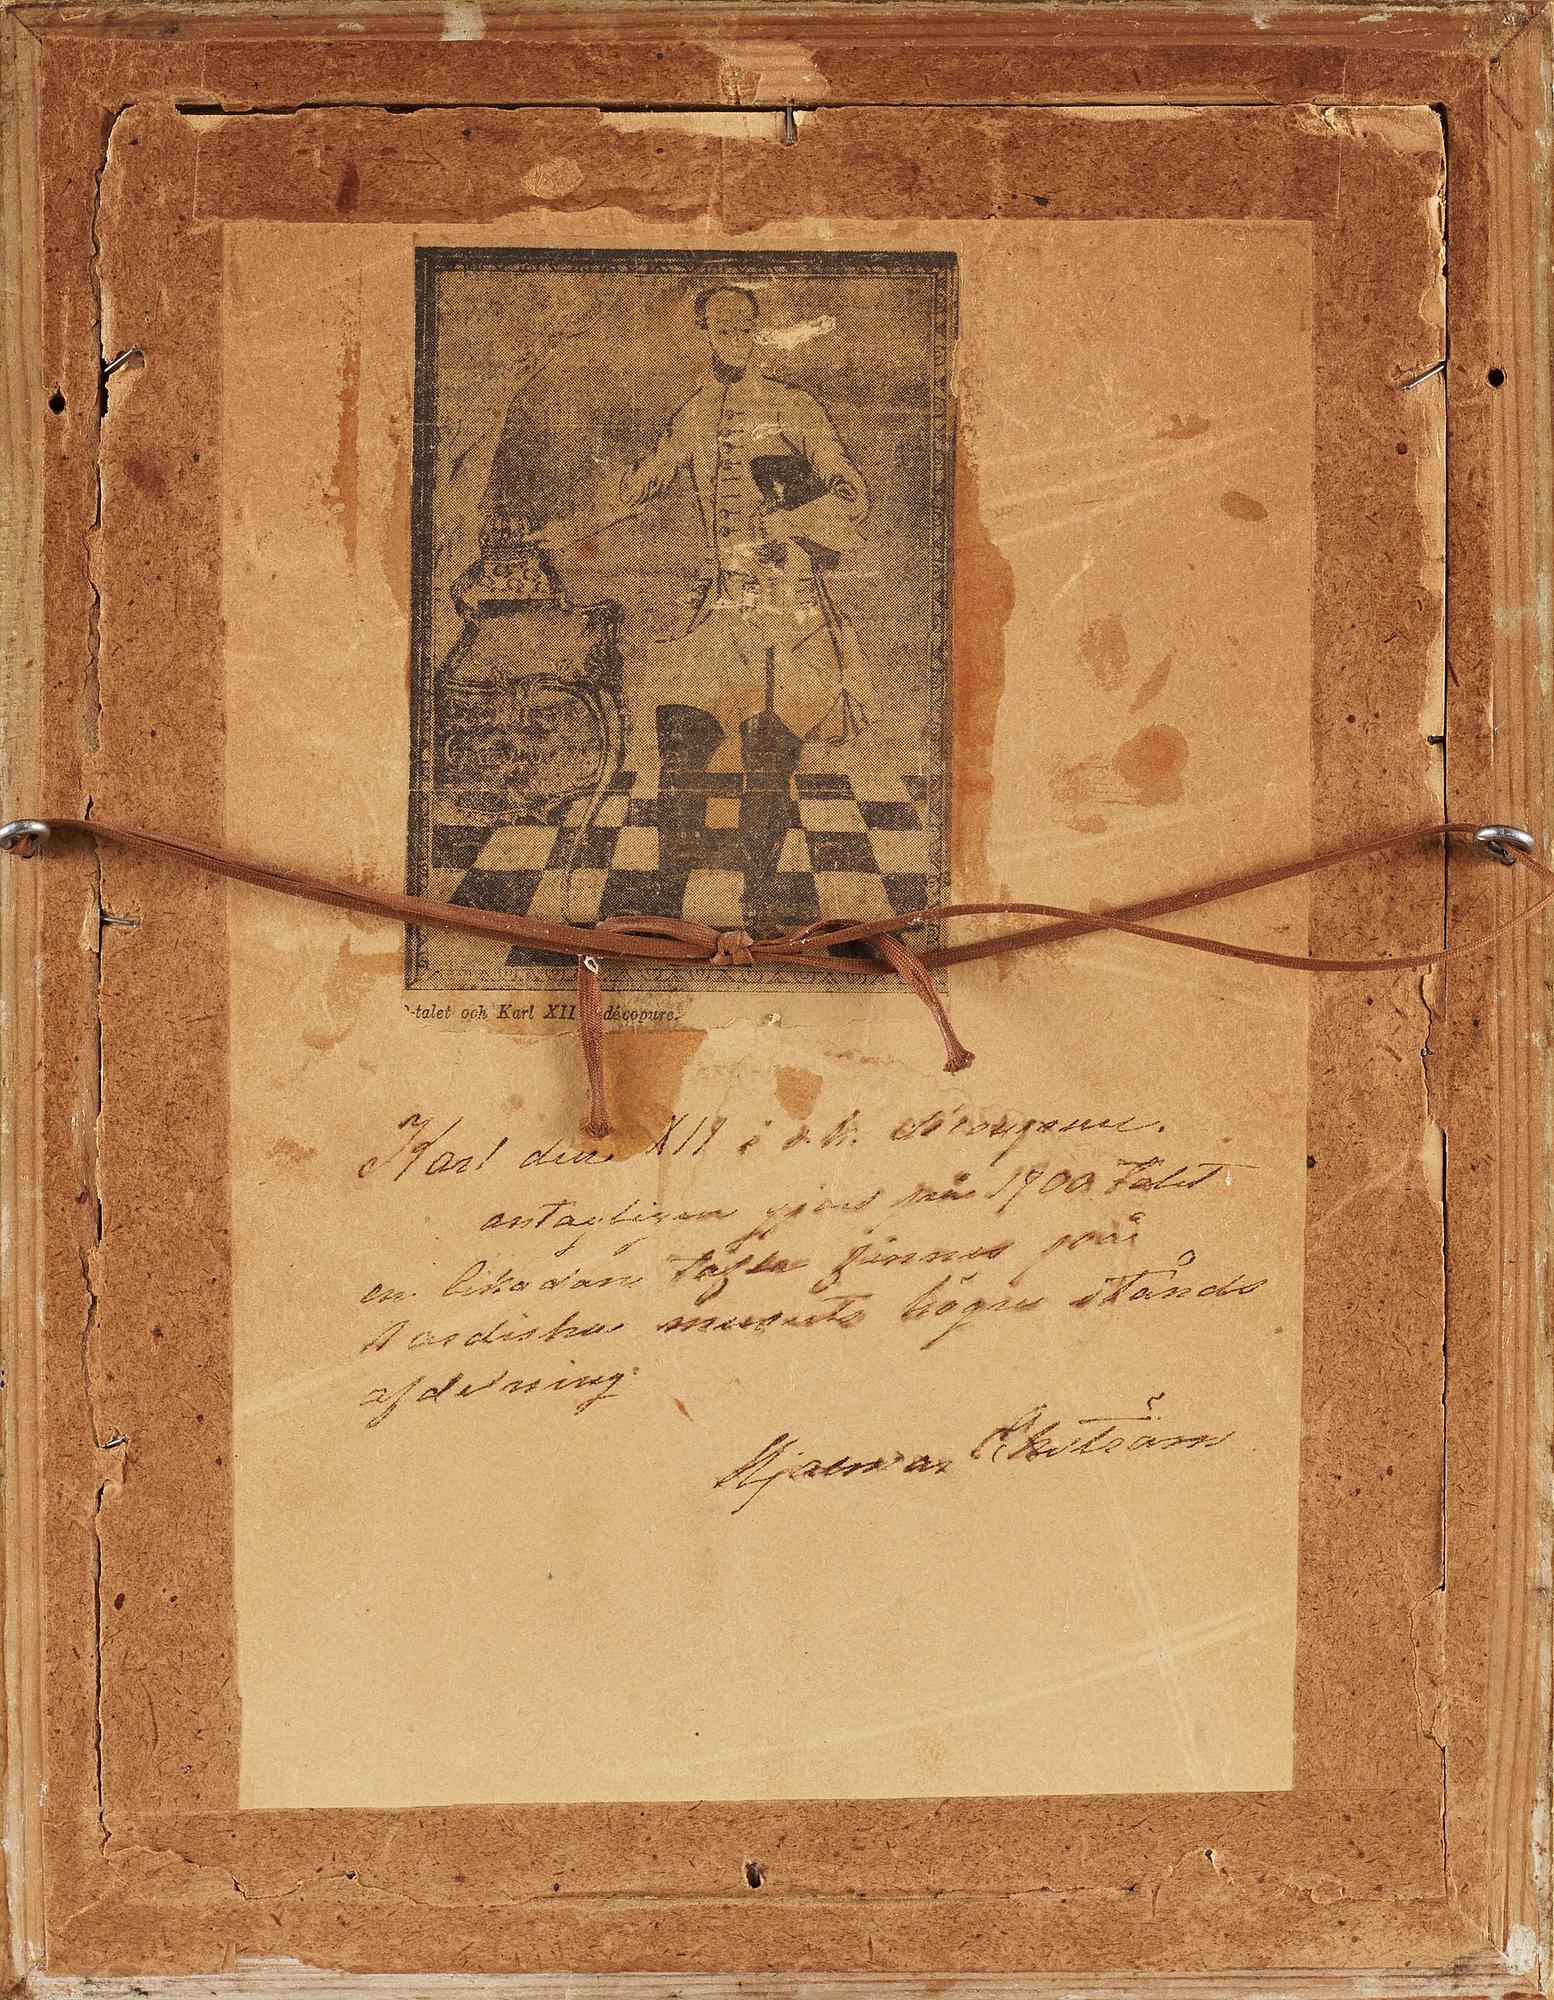 -talet och Karl XII décopure.
Karl den XII i s.k. découpeur.
antagligen gjord på 1700 talet
en likadan tafla finnes på
Nordiska museets högre stånds
afdelning.
Hjalmar